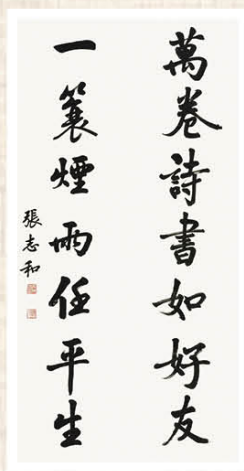 萬卷詩書如好友
一蓑煙雨任平生
張志和